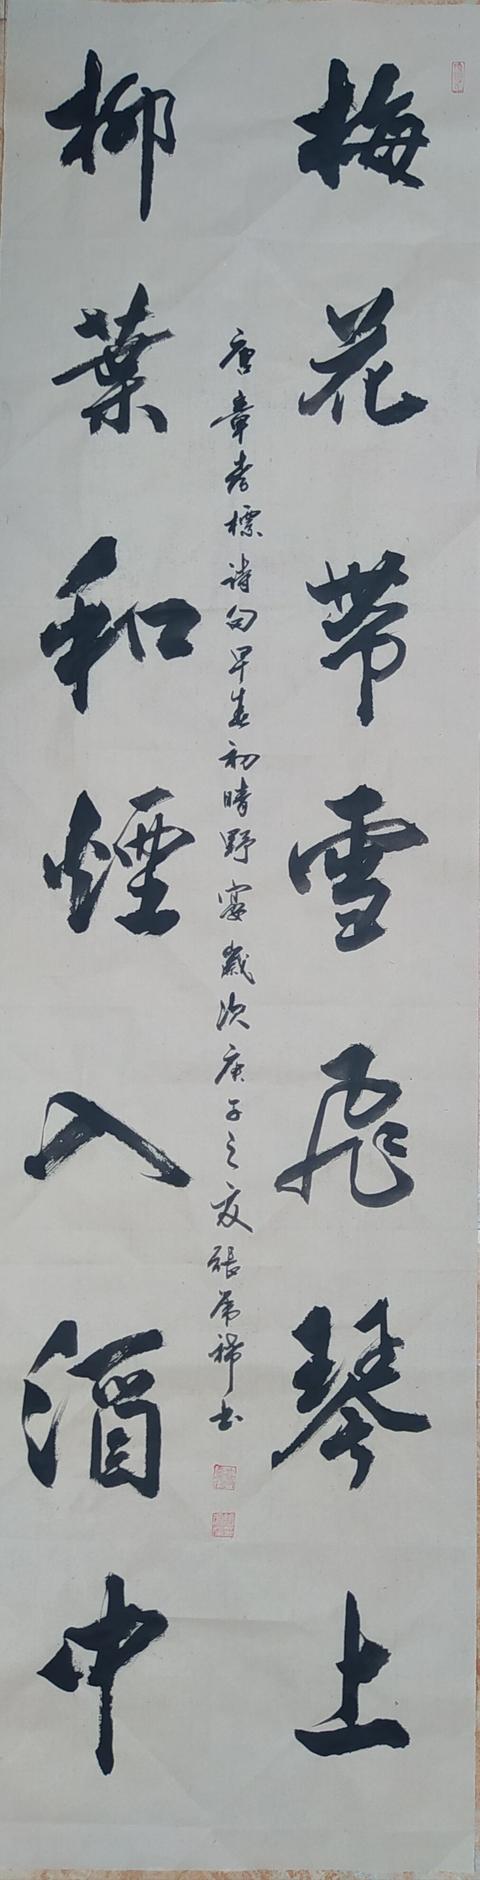 梅花帶雪飛琴上
柳葉和煙入酒中
唐章孝標詩句早春初晴野宴歲次庚子之夏張希稀書